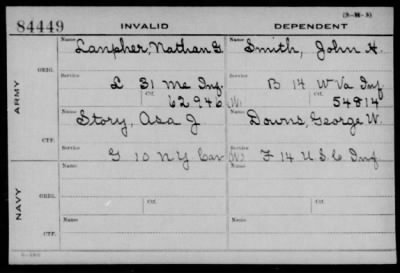 (3-M-8)
84449 INVALID DEPENDENT
Name Name
Lanpher, Nathan G. Smith, John H.
ORIG.
Service Service
L 31 Me Inf. B 14 W Va Inf
Ctf. Ctf.
62946 (W) 54814
ARMY
Name Name
Story, Asa J Downs, George W.
CTF.
Service Service
G 10 N Y Cav (W) F 14 U S C Inf
Name Name
ORIG.
Service Service
Ctf. Ctf.
NAVY
Name Name
CTF.
Service Service